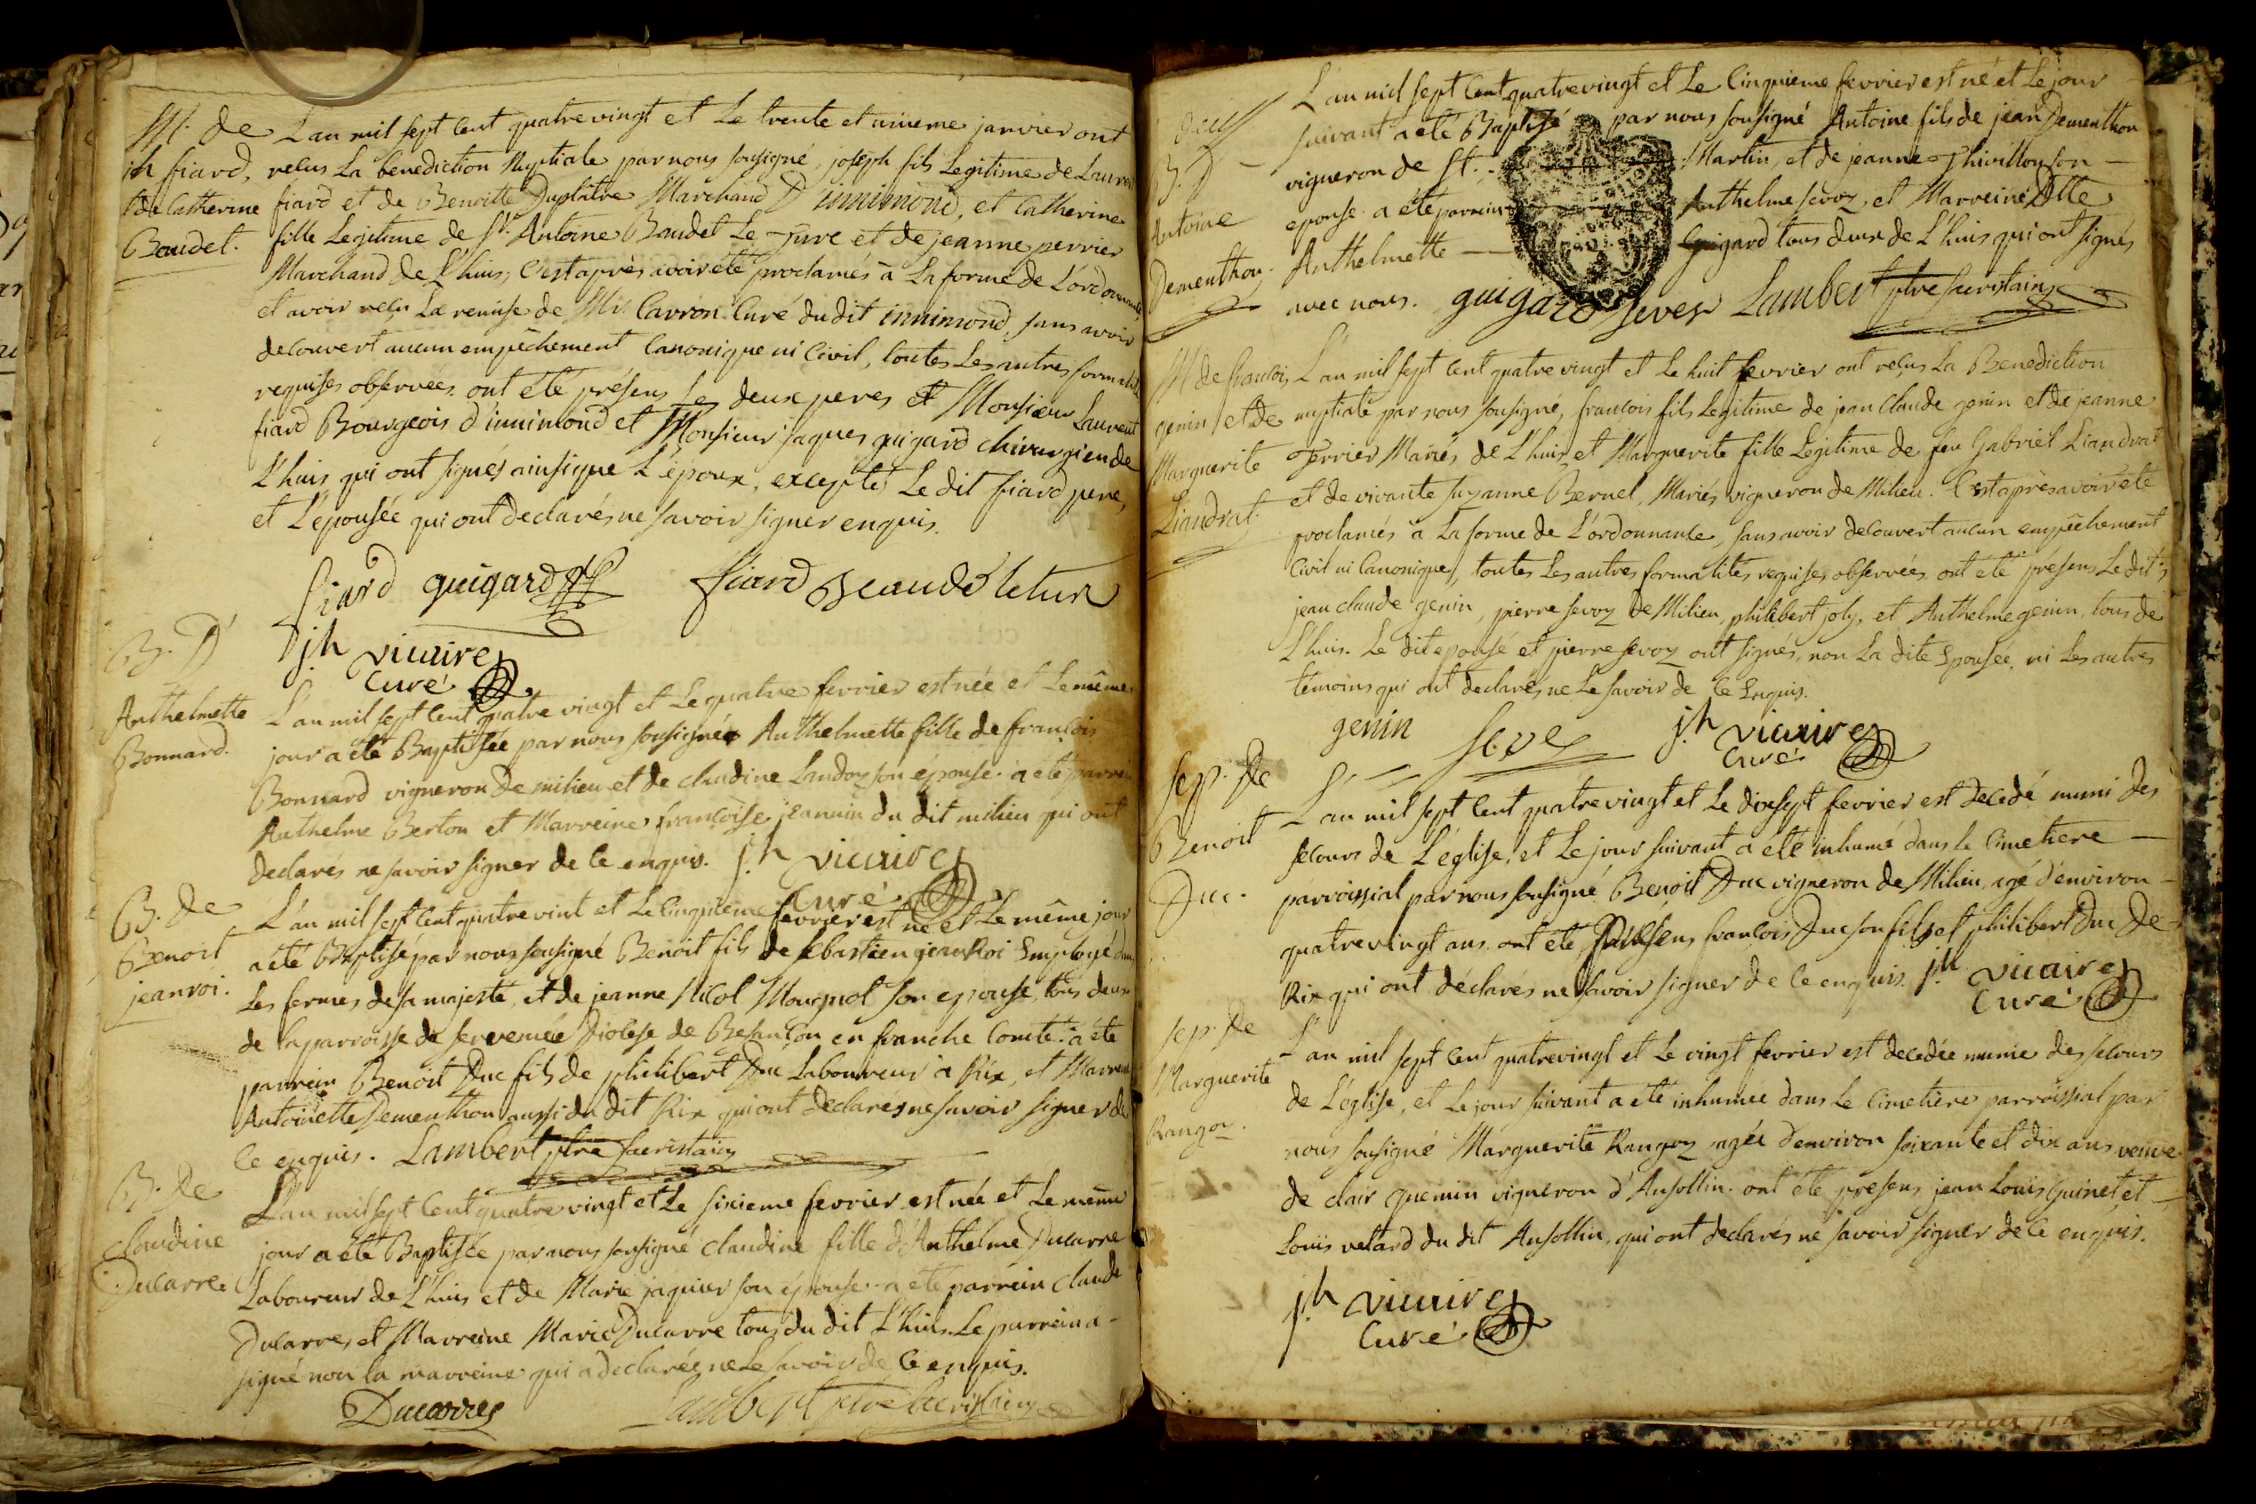 M. de
jh fiard,
et de Catherine
Baudet.
L'an mil sept cent quatre vingt et le trente et unieme janvier ont
reçus La benediction Nuptiale par nous sousigné, joseph fils Legitime de Laurent
fiard et de Benoitte Duplatre Marchand D'innimond, et Catherine
fille Legitime de Sr. Antoine Baudet Le Ture et de jeanne perrier
Marchand de L'huis, C'est après avoir été proclamés à La forme de L'ordonnance
et avoir reçu La remise de Mr. Carron Curé du dit innimond, sans avoir
decouvert aucun empêchement Canonique ni Civil, toutes Les autres formalités
requises observées. ont été présens Les deux peres et Monsieur Laurent
fiard Bourgeois d'innimond et Monsieur jaques guigard chirurgien de
L'huis qui ont signés ainsi que L'époux, excepté Le dit fiard pere,
et L'épousée qui ont declarés ne savoir signer enquis.
fiard guigard fiard Beaudé letur
jh vicaire
Curé
B. D'
Anthelmette
Bonnard.
L'an mil sept Cent quatre vingt et Le quatre fevrier est née et Le même
jour a été Baptisée par nous sousigné Anthelmette fille de françois
Bonnard vigneron de milieu et de claudine Landoz son épouse. a été parrein
Anthelme Berton et Marreine françoise jeannin du dit milieu qui ont
declarés ne savoir signer de Ce enquis. jh vicaire
Curé
B. de
Benoit
jeanroi.
L'an mil sept Cent quatre vint et Le Cinquieme fevrier est né et Le même jour
a été Baptisé par nous sousigné Benoit fils de sebastien jeanRoi Employé dans
Les fermes de sa majesté, et de jeanne Nicol Mougnol son epouse, tous deux
de la parroisse de servenée Diocese de Besançon en franche Comté. a été
parrein Benoit Duc fils de philibert Duc Laboureur à Rix, et Marreine
Antoinette Dementhon aussi du dit Rix qui ont declarés ne savoir signer de
Ce enquis. Lambert ptre sacristain
B. de
Claudine
Ducarre
L'an mil sept Cent quatre vingt et Le sixieme fevrier est née et Le même
jour a été Baptisée par nous sousigné claudine fille d'Anthelme Ducarre
Laboureur de L'huis et de Marie jaquier son épouse. a été parrein claude
Ducarre, et Marreine Marie Ducarre tous du dit L'huis. Le parrein a
signé non La marreine qui a declarée ne Le savoir de Ce enquis.
Ducarres Lambert ptre sacristain
B. D
Antoine
Dementhon.
L'an mil sept Cent quatre vingt et Le Cinquieme fevrier est né et Le jour
suivant a été Baptisé par nous sousigné Antoine fils de jean Dementhon
vigneron de St. Martin, et de jeanne Thivillon son
epouse. a été parrein Anthelme sevoz, et Marreine Dlle
Anthelmette Guigard tous deux de L'huis qui ont signés
avec nous. guigard sevoz Lambert ptre sacristain
M. de françois
genin et de
Marguerite
Liandrat.
L'an mil sept Cent quatre vingt et Le huit fevrier ont reçus La Benediction
nuptiale par nous sousigné, françois fils Legitime de jean Claude genin et de jeanne
Ferrier Mariés de L'huis et Marguerite fille Legitime de feu Gabriel Liandrat
et de vivante suzanne Bernel, Mariés vigneron de Milieu. C'est après avoir été
proclamés à La forme de L'ordonnance, sans avoir decouvert aucun empêchement
Civil ni Canonique, toutes Les autres formalités requises observées. ont été présens Le dit
jean claude genin, pierre sevoz de Milieu, philibert joly, et Anthelme genin, tous de
L'huis. Le dit epousé et pierre sevoz ont signés, non La dite Epousée, ni Les autres
témoins qui ont declarés ne Le savoir de Ce Enquis.
genin sevoz jh vicaire
Curé
Sep. de
Benoit
Duc.
L'an mil sept Cent quatre vingt et Le dixsept fevrier est decedé muni des
secours de L'église, et Le jour suivant a été inhumé dans le Cimetiere
parroissial par nous sousigné Benoit Duc vigneron de Milieu, agé d'environ
quatre vingt ans. ont été présens françois Duc son fils et philibert Duc de
Rix qui ont déclarés ne savoir signer de Ce enquis. jh vicaire
Curé
Sep. de
Marguerite
Rangoz.
L'an mil sept Cent quatre vingt et Le vingt fevrier est decedée munie des secours
de L'église, et Le jour suivant a été inhumée dans Le Cimetiere parroissial par
nous sousigné Marguerite Rangoz agée d'environ soixante et dix ans veuve
de clair quemin vigneron d'Ansollin. ont été presens jean Louis Guinet, et
Louis velard du dit Ansollin, qui ont declarés ne savoir signer de Ce enquis.
jh vicaire
Curé